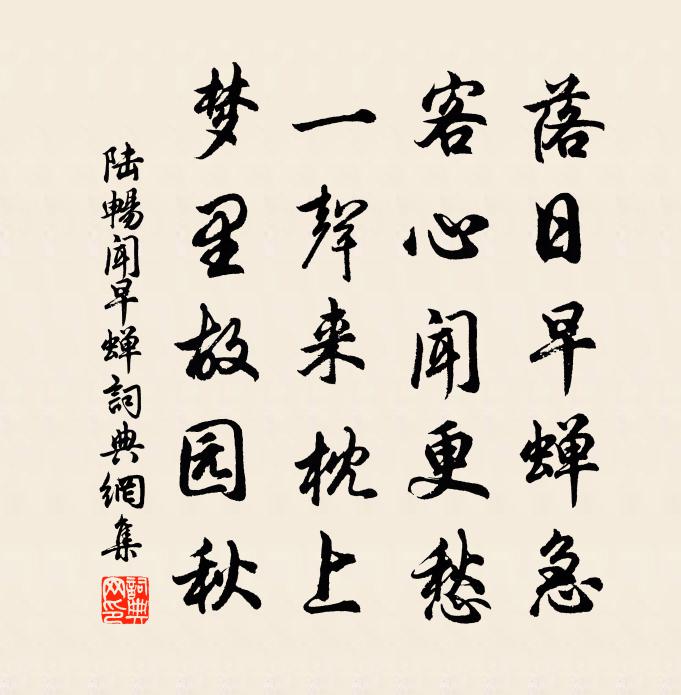 落日早蝉急
客心闻更愁
一聲来枕上
梦里故园秋
陆暢闻早蝉詞典網集
詞典网印